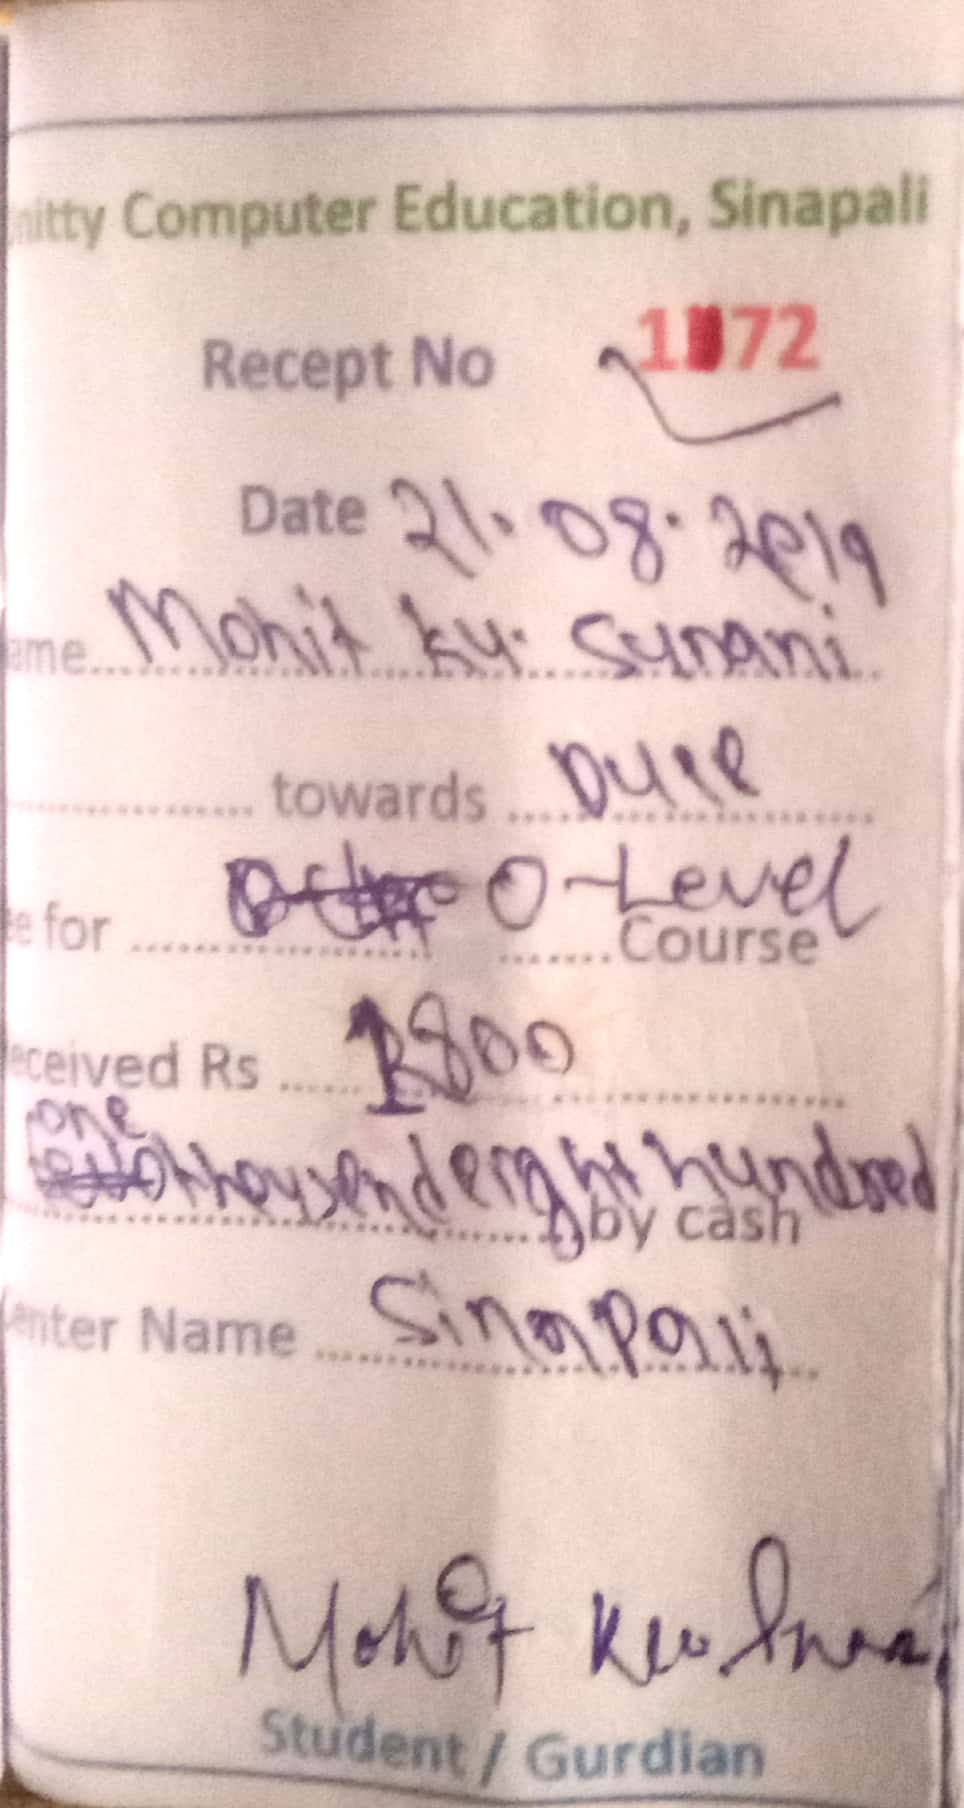 nitty Computer Education, Sinapali
Recept No 1172
Date 21.08.2019
ame Mohit ku. Sunani
towards Duee
e for O-Level Course
eceived Rs 1800
one thousend eight hundred by cash
enter Name Sinapali
Mohit Ku Sunani
Student / Gurdian